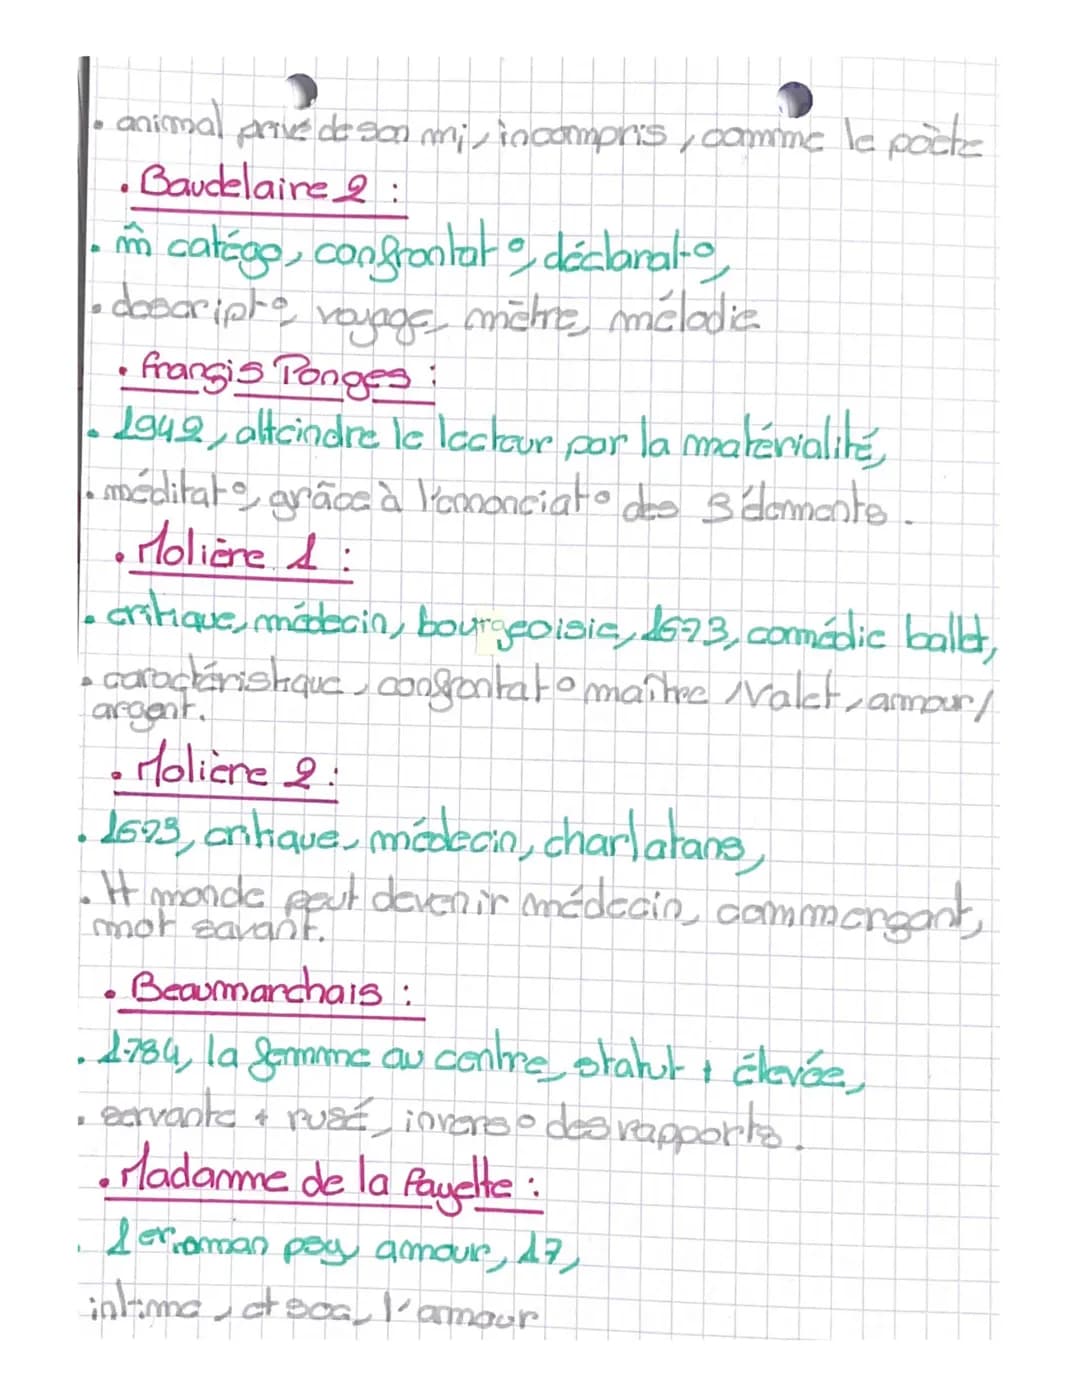 . animal privé de son mi, incompris, comme le poète
. Baudelaire 2 :
. m̂ catégo, confrontat°, déclarat°,
. descript°, voyage, mètre, mélodie
. francis Ponges :
. 1942, atteindre le lecteur par la matérialité,
. méditat°, grâce à l'énonciat° des 3 éléments.
. Molière 1 :
. critique, médecin, bourgeoisie, 1673, comédie ballet,
. caractéristique, confrontat° maître / valet, amour /
argent.
. Molière 2 :
. 1673, critique, médecin, charlatans,
. tt monde peut devenir médecin, commerçant,
mot savant.
. Beaumarchais :
. 1784, la femme au centre, statut + élevée,
. servante + rusé, invers° des rapports.
. Madamme de la fayette :
. 1er roman psy amour, 17,
intime, et soc, l'amour